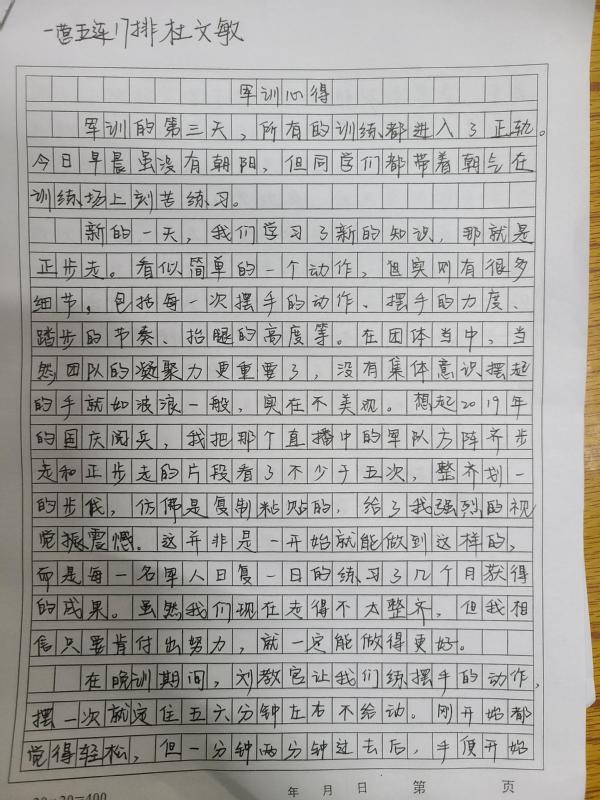 一营五连17排杜文敏
军训心得
军训的第三天，所有的训练都进入了正轨。
今日早晨虽没有朝阳，但同学们都带着朝气在
训练场上刻苦练习。
新的一天，我们学习了新的知识，那就是
正步走。看似简单的一个动作，但实则有很多
细节，包括每一次摆手的动作、摆手的力度、
踏步的节奏、抬腿的高度等。在团体当中，当
然团队的凝聚力更重要了，没有集体意识摆起
的手就如波浪一般，实在不美观。想起2019年
的国庆阅兵，我把那个直播中的军队方阵齐步
走和正步走的片段看了不少于五次，整齐划一
的步伐，仿佛是复制粘贴的，给了我强烈的视
觉振震憾。这并非是一开始就能做到这样的，
而是每一名军人日复一日的练习了几个月获得
的成果。虽然我们现在走得不太整齐，但我相
信只要肯付出努力，就一定能做得更好。
在晚训期间，刘教官让我们练摆手的动作，
摆一次就定住五六分钟左右不给动。刚开始都
觉得轻松，但一分钟两分钟过去后，手便开始
20×20=400
年 月 日 第 页